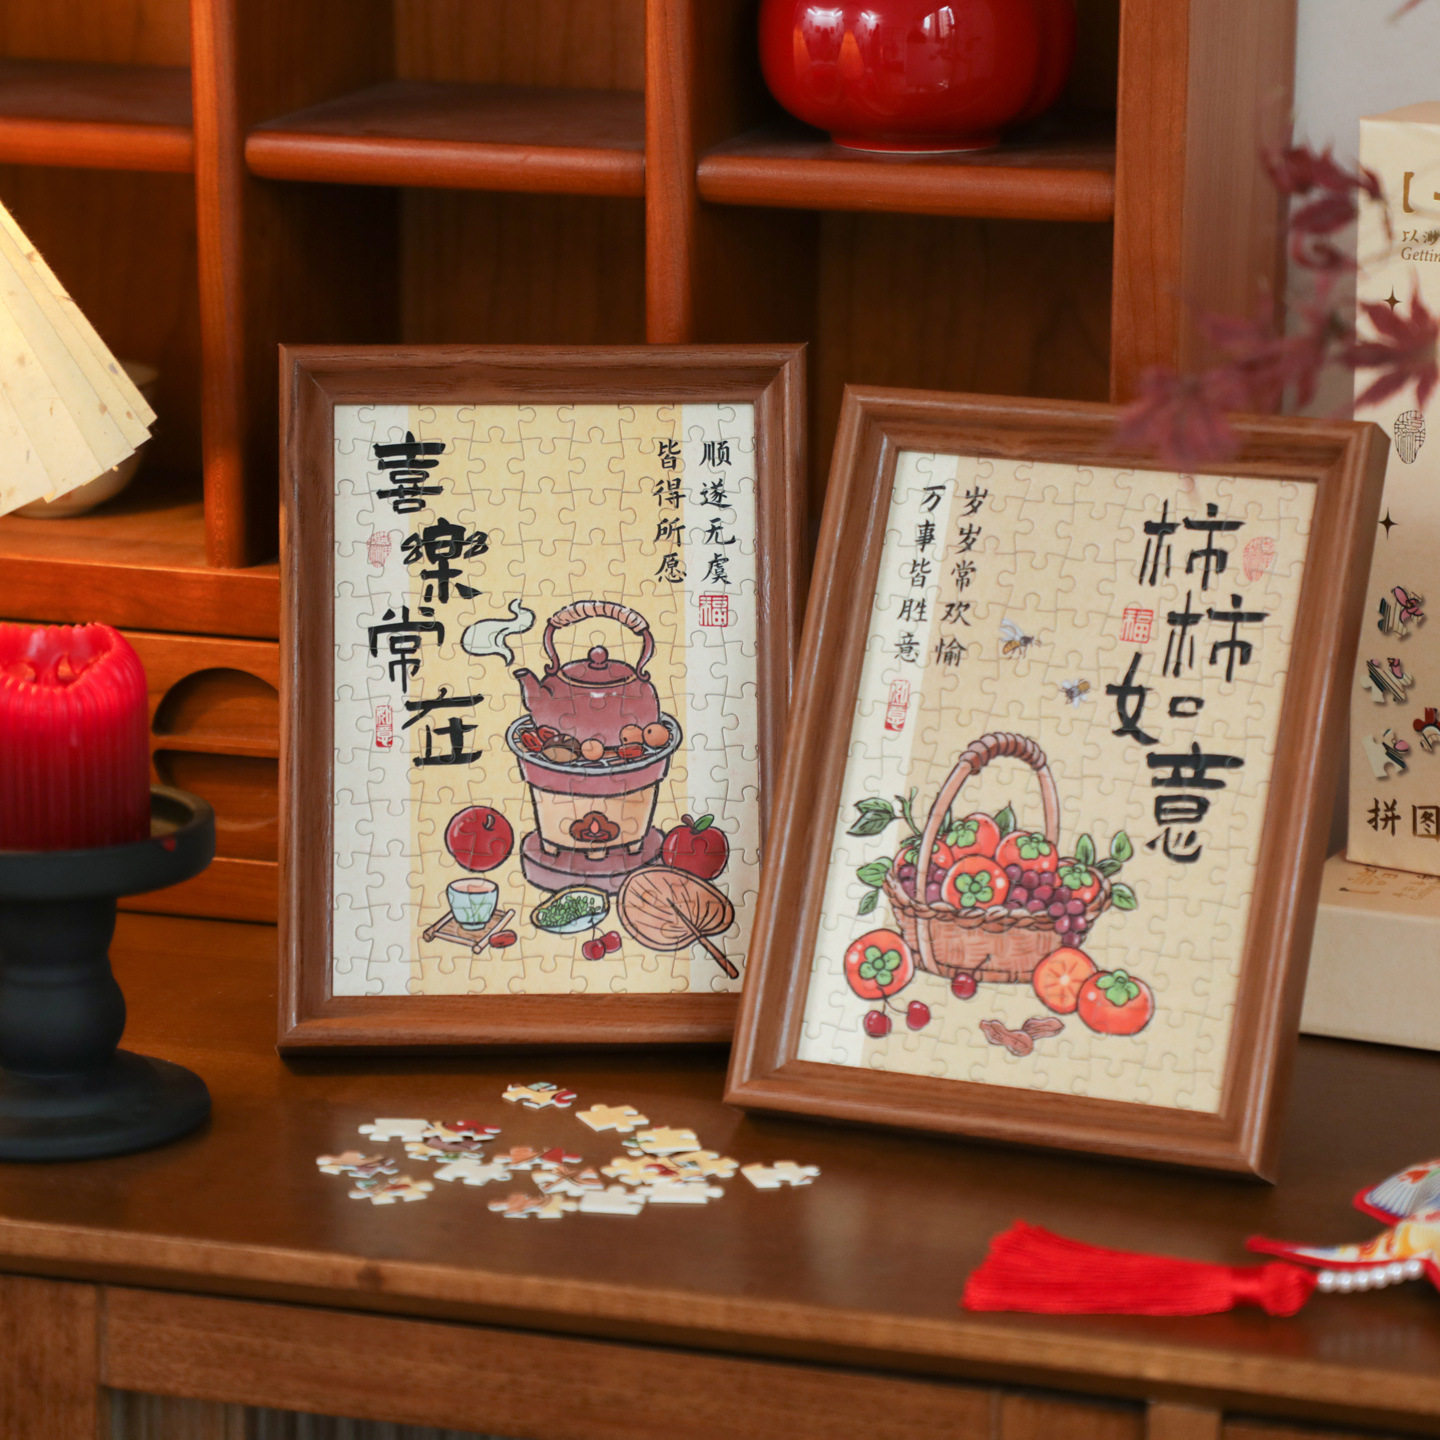 喜樂常在
顺遂无虞
皆得所愿
福
柿柿如意
福
岁岁常欢愉
万事皆胜意
Gettin
拼图